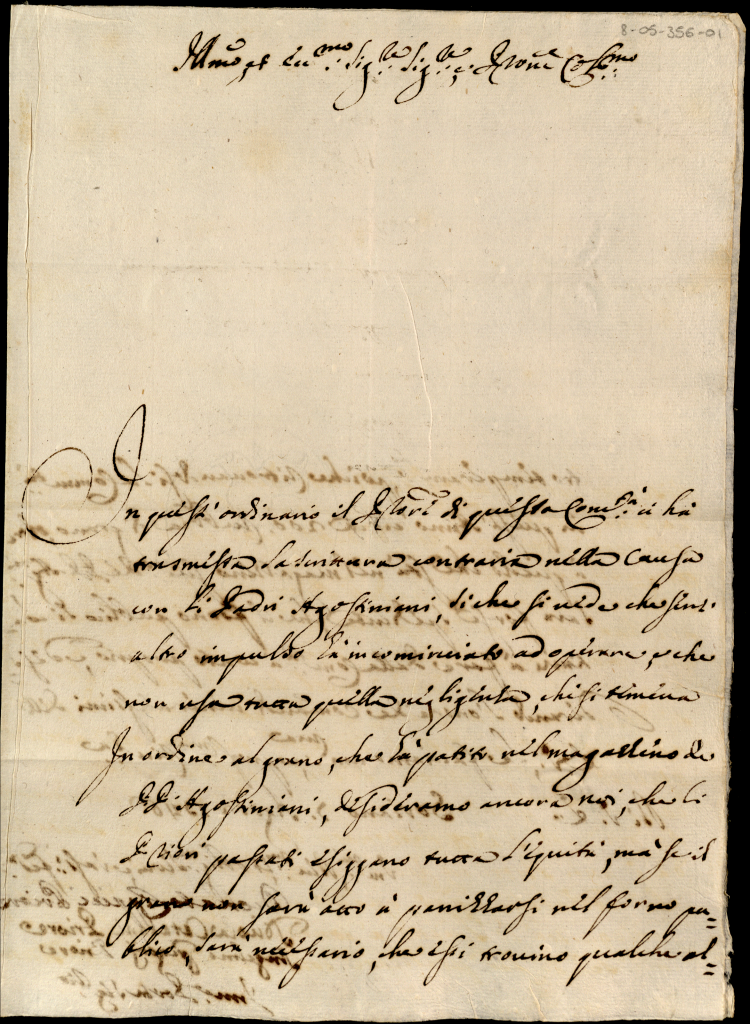 8-05-356-01
Ill.mo, et Ecc.mo Sig.re Sig.re, e Pron.e Col.mo
In quest'ordinario il Proc.re di questa Com.tà ci hà
trasmessa la scrittura contraria nella Causa
con li Padri Agostiniani, siche si vede che senz'
altro impulso hà incominciato ad operare, e che
non usa tutta quella negligenza, che si temeva
In ordine al grano, che hà patito nel magazzino de
PP. Agostiniani, desideramo ancora noi, che li
Priori passati esiggano tutta l'equità, mà se il
grano non sarà atto à panizzarsi nel forno pu=
blico, sarà necessario, che essi trovino qualche al=